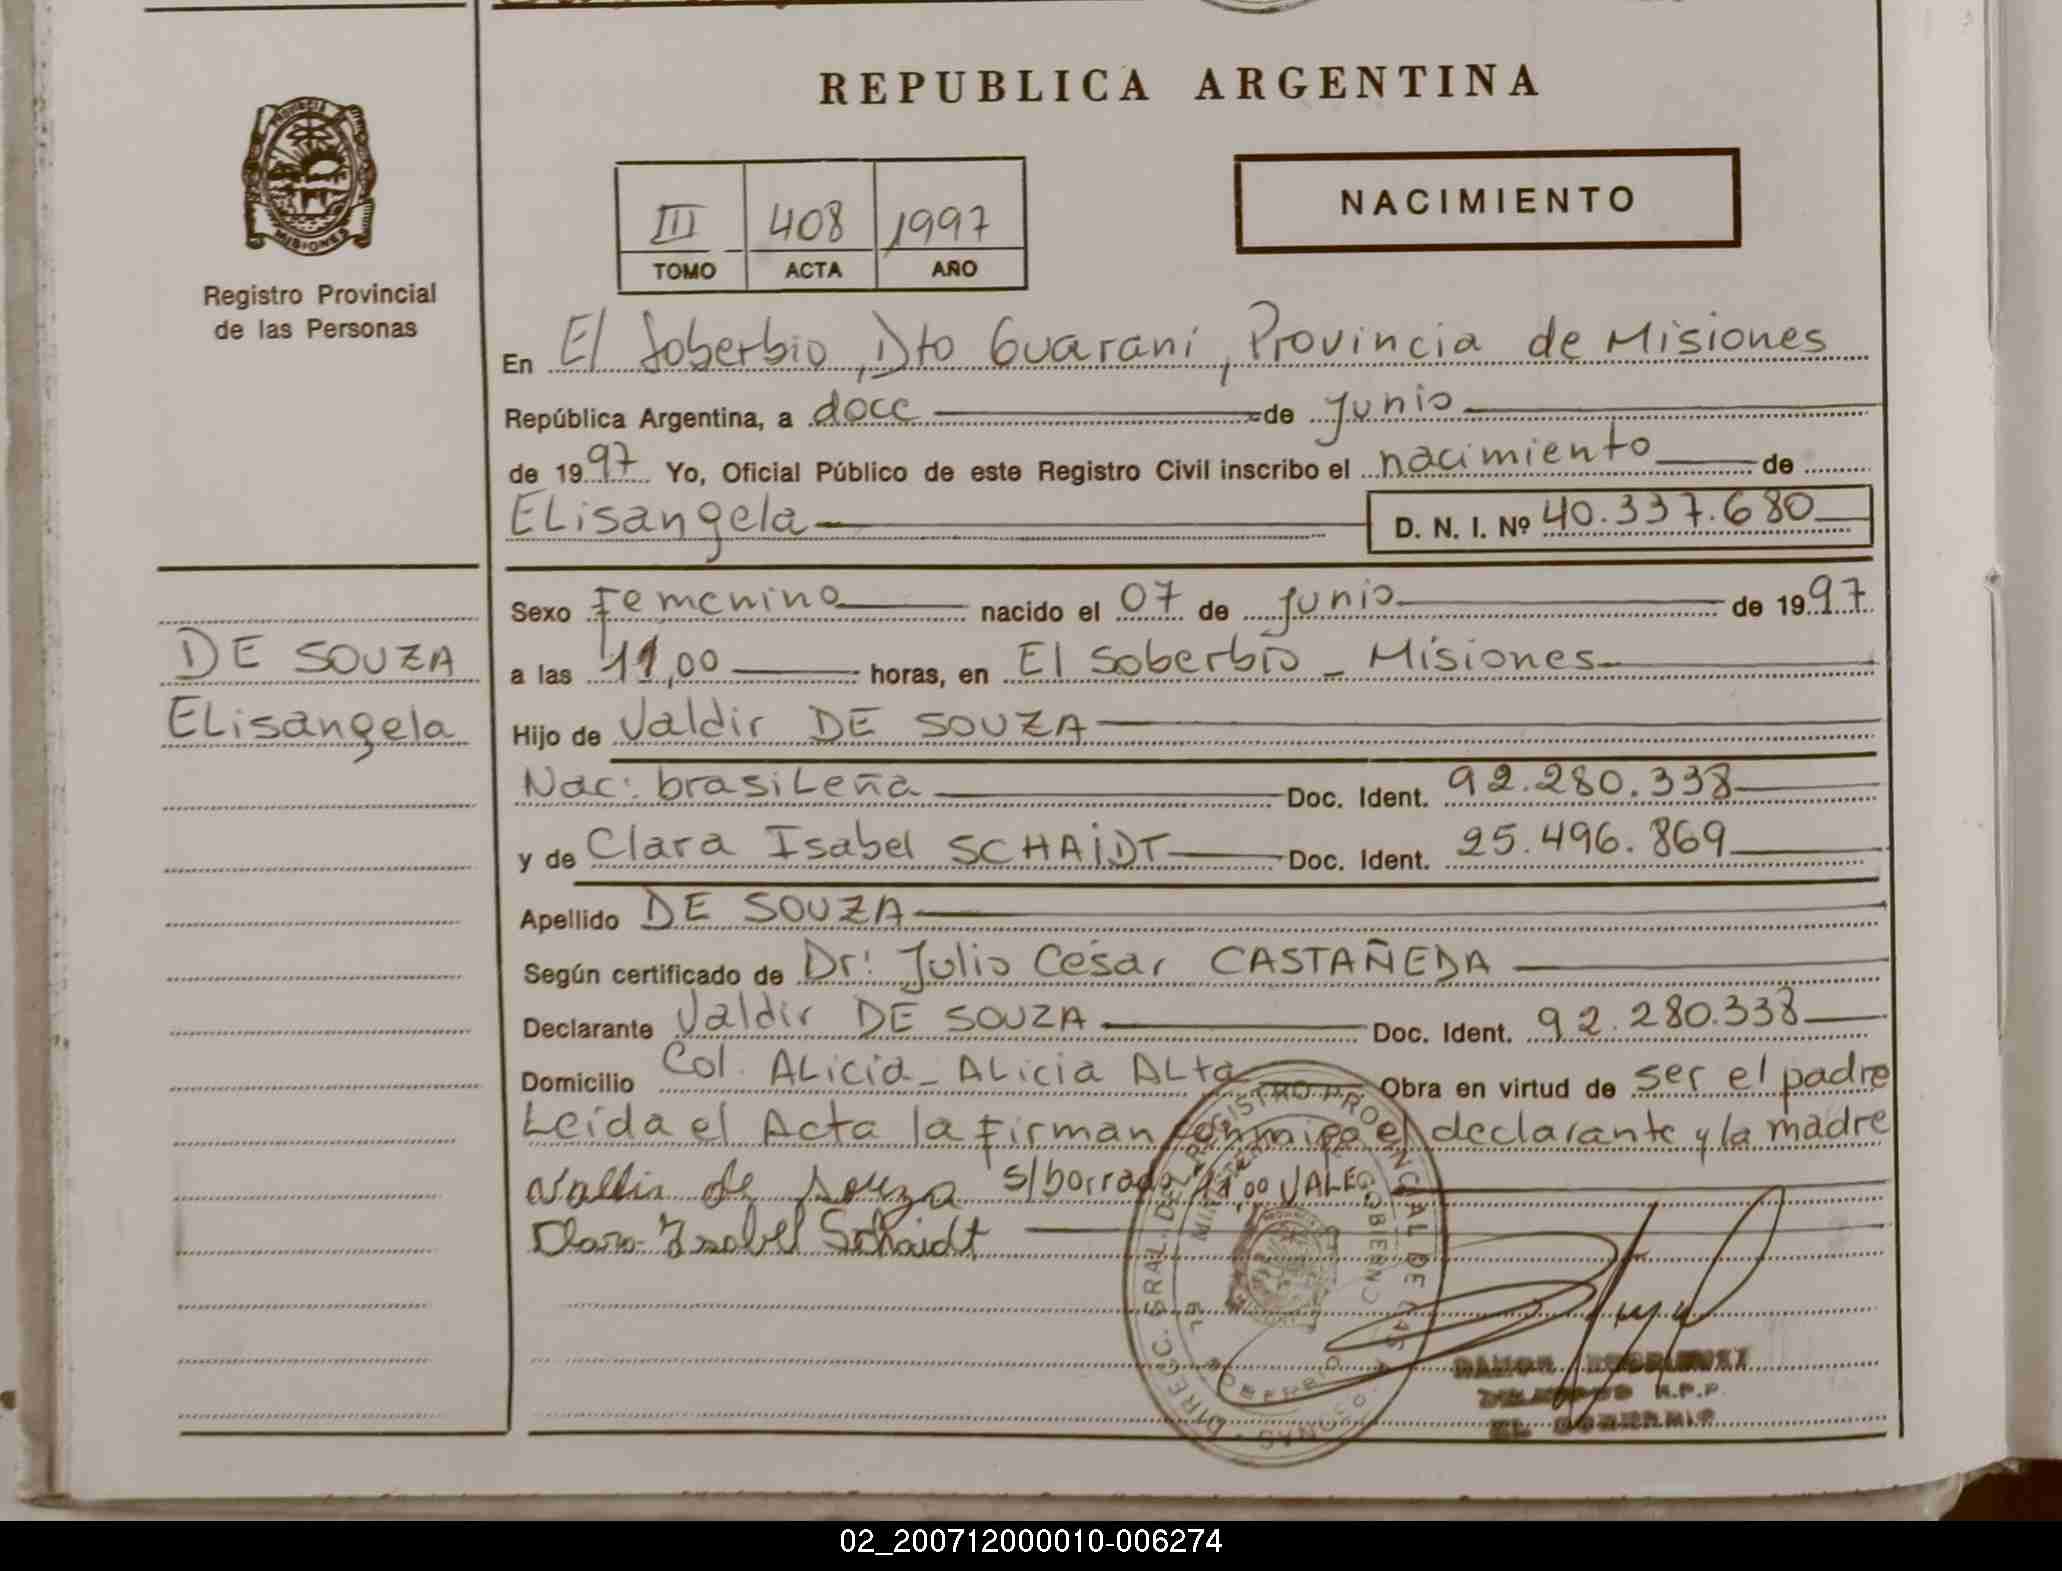 REPUBLICA ARGENTINA
NACIMIENTO
III 408 1997
TOMO ACTA AÑO
PROVINCIA DE MISIONES
Registro Provincial
de las Personas
En El Soberbio, Dto Guaraní, Provincia de Misiones
República Argentina, a doce de Junio
de 1997 Yo, Oficial Público de este Registro Civil inscribo el nacimiento de
ELisangela D. N. I. Nº 40.337.680
Sexo Femenino nacido el 07 de Junio de 1997
DE SOUZA
ELisangela
a las 11,00 horas, en El Soberbio - Misiones
Hijo de Valdir DE SOUZA
Nac: brasiLeña Doc. Ident. 92.280.338
y de Clara Isabel SCHAiDT Doc. Ident. 25.496.869
Apellido DE SOUZA
Según certificado de Dr: Julio César CASTAÑEDA
Declarante Valdir DE SOUZA Doc. Ident. 92.280.338
Domicilio Col. ALicia - ALicia ALta Obra en virtud de ser el padre
Leída el Acta la Firman conmigo el declarante y la madre
de Souza s/borrado 11,00 VALE
Clara Isabel Schaidt
DIRECC. GRAL. DEL REGISTRO PROVINCIAL DE LAS PERSONAS
GOBIERNO
EL SOBERBIO
RAMON RODRIGUEZ
R.P.P.
EL SOBERBIO
02_200712000010-006274